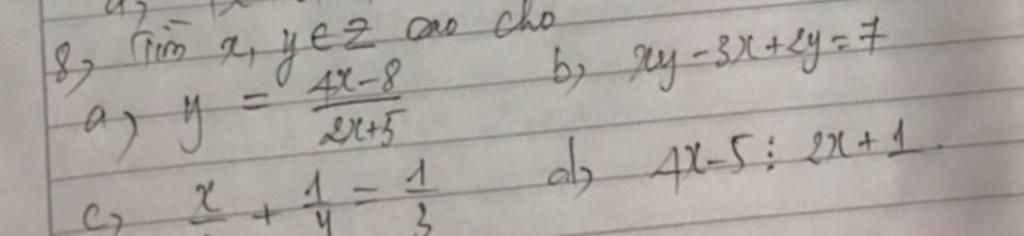 8, Tìm x, y ∈ Z sao cho
a) y = \frac{4x-8}{2x+5} b, xy - 3x + 2y = 7
c, \frac{x}{} + \frac{1}{y} = \frac{1}{3} d, 4x - 5 ⋮ 2x + 1.